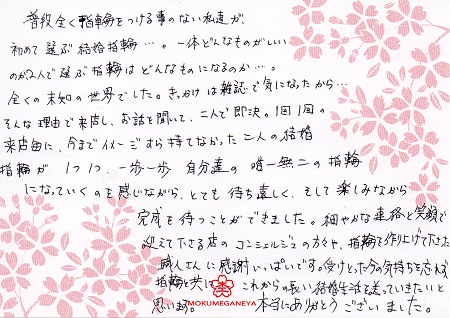 普段全く指輪をつける事のない私達が、
初めて選ぶ結婚指輪…。一体どんなものがいい
のか2人で選ぶ指輪はどんなものになるのか…。
全くの未知の世界でした。きっかけは雑誌で気になったから…
そんな理由で来店し、お話を聞いて、二人で即決。1回1回の
来店毎に、今までイメージすら持てなかった二人の結婚
指輪が1つ1つ、一歩一歩自分達の唯一無二の指輪
になっていくのを感じながら、とても待ち遠しく、そして楽しみながら
完成を待つことができました。細やかな連絡と笑顔で
迎えて下さる店のコンシェルジュの方々や、指輪を作り上げて下さた
職人さんに感謝いっぱいです。受けとった今の気持ちを忘れず
指輪と共に、これからの長い結婚生活を送っていきたいと
思います。本当にありがとうございました。
MOKUMEGANEYA